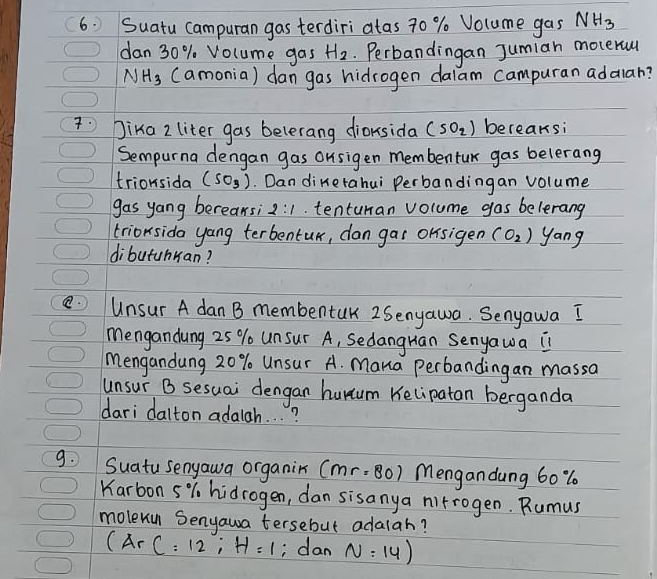 6. Suatu campuran gas terdiri atas 70% Volume gas NH3
dan 30% Volume gas H2. Perbandingan Jumlah molekul
NH3 (amonia) dan gas hidrogen dalam campuran adalah?
7. Jika 2 liter gas belerang dioksida (SO2) bereaksi
Sempurna dengan gas oksigen membentuk gas belerang
trioksida (SO3). Dan diketahui perbandingan volume
gas yang bereaksi 2:1. tentukan volume gas belerang
trioksida yang terbentuk, dan gas oksigen (O2) yang
dibutuhkan?
8. Unsur A dan B membentuk 2 Senyawa. Senyawa I
mengandung 25% unsur A, sedangkan senyawa ii
mengandung 20% unsur A. Maka perbandingan massa
unsur B sesuai dengan hukum kelipatan berganda
dari dalton adalah...?
9. Suatu senyawa organik (mr = 80) mengandung 60%
Karbon 5% hidrogen, dan sisanya nitrogen. Rumus
molekul Senyawa tersebut adalah?
(Ar C = 12 ; H = 1 ; dan N = 14)